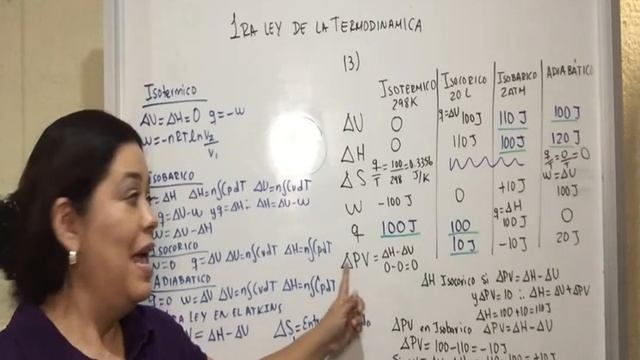 1RA LEY DE LA TERMODINAMICA
13)
Isotermico
ΔU = ΔH = 0 q = -W
W = -nRT ln V₂
V₁
ISOBARICO
= ΔH ΔH = n∫CpdT ΔU = n∫CvdT
q = ΔU - W y q = ΔH ∴ ΔH = ΔU - W
W = ΔU - ΔH
ISOCORICO
= 0 q = ΔU ΔU = n∫CvdT ΔH = n∫CpdT
ADIABATICO
q = 0 W = ΔU ΔU = n∫CvdT ΔH = n∫CpdT
LEY EN ATKINS
V = ΔH - ΔU ΔS =
ISOTERMICO ISOCORICO ISOBARICO ADIABÁTICO
298K 20 L 2 ATM
ΔU 0 q = ΔU 100 J 110 J 100 J
ΔH 0 110 J 100 J 120 J
ΔS q/T = 100/298 = 0.3356 J/K q/T = 0/T = 0
W -100 J 0 +10 J W = ΔU 100 J
q 100 J 100 q = ΔH 100 J 0
ΔPV = ΔH - ΔU 10 J -10 J 20 J
0 - 0 = 0
ΔH Isocorico si ΔPV = ΔH - ΔU
y ΔPV = 10 ∴ ΔH = ΔU + ΔPV
ΔH = 100 + 10 = 110 J
ΔPV en Isobarico ΔPV = ΔH - ΔU
ΔPV = 100 - 110 = -10 J